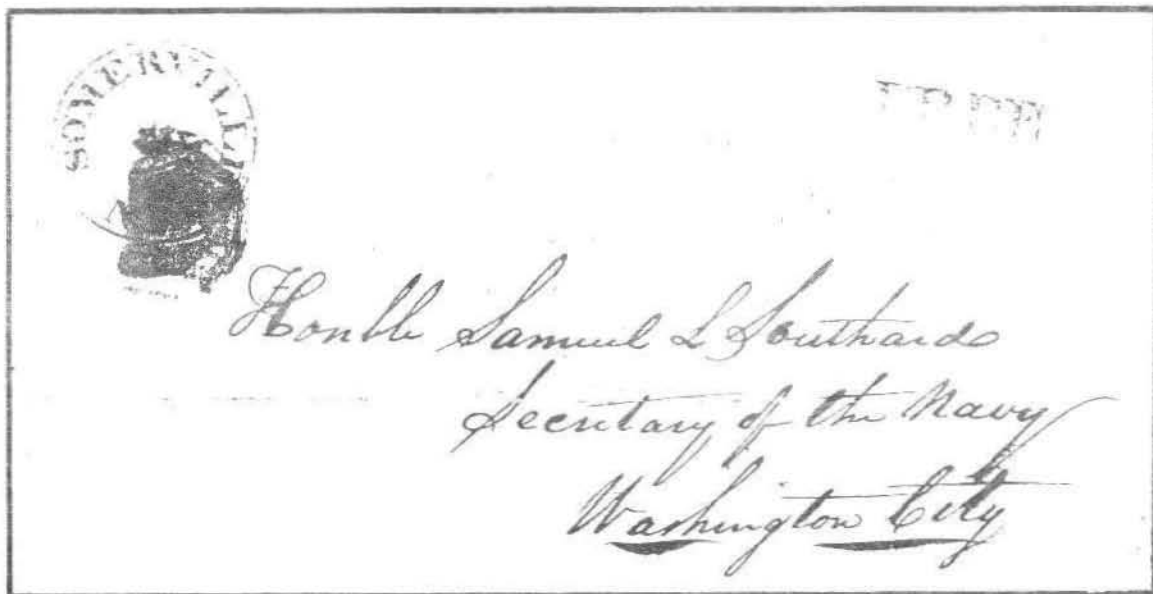 SOMERVILL
FREE
Honble Samuel L Southard
Secretary of the Navy
Washington City